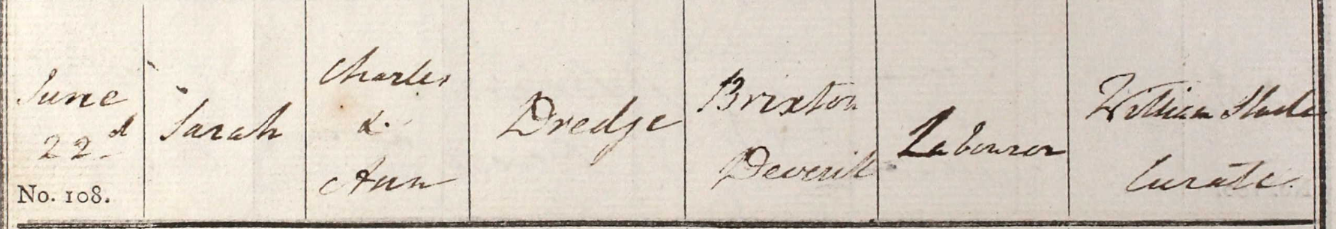 June
22d
No. 108.
Sarah
Charles
&
Ann
Dredge
Brixton
Deverill
Labourer
William
Curate.